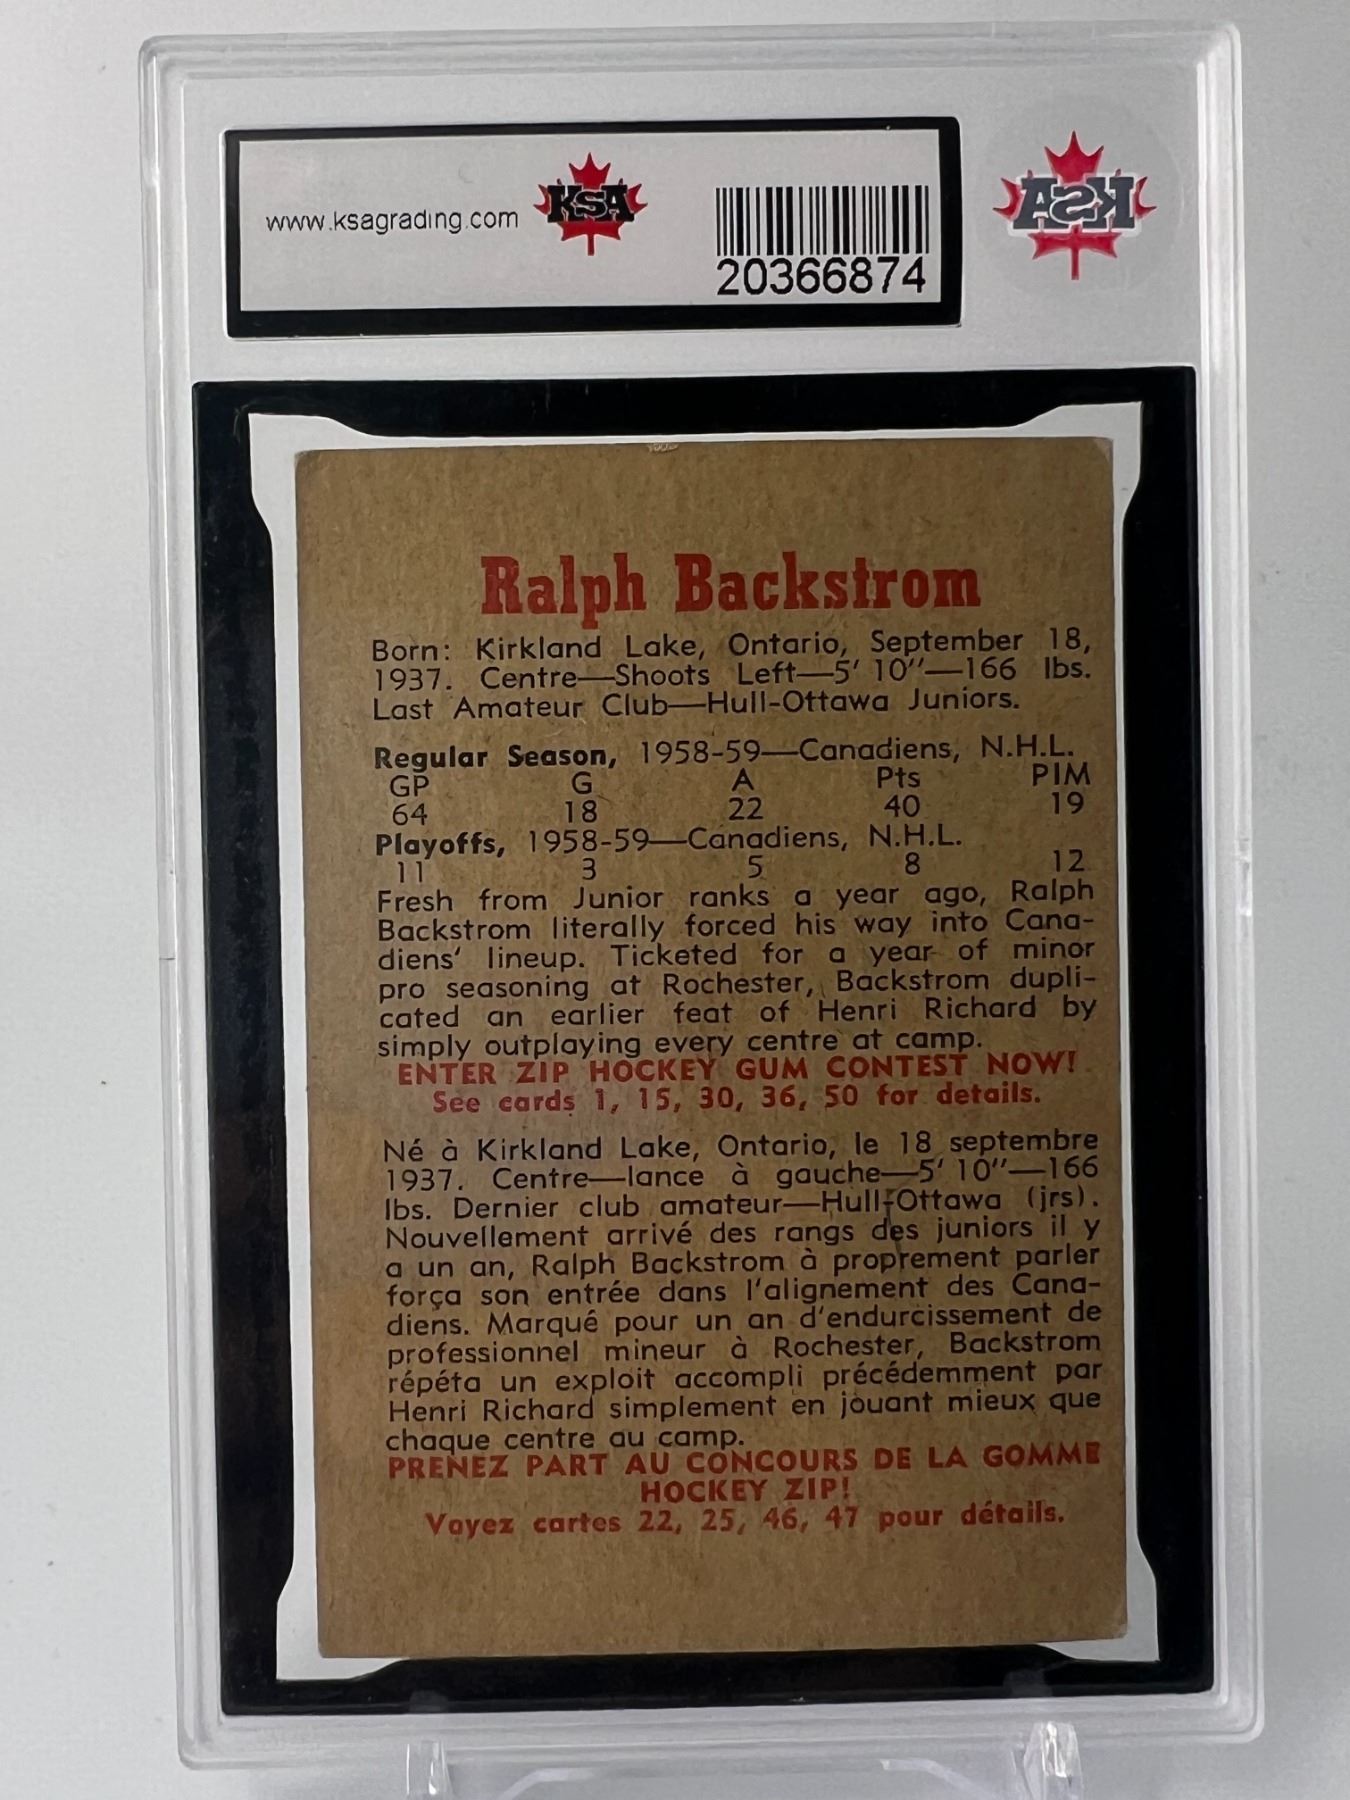 www.ksagrading.com
KSA
20366874
KSA
Ralph Backstrom
Born: Kirkland Lake, Ontario, September 18,
1937. Centre—Shoots Left—5' 10''—166 lbs.
Last Amateur Club—Hull-Ottawa Juniors.
Regular Season, 1958-59—Canadiens, N.H.L.
GP G A Pts PIM
64 18 22 40 19
Playoffs, 1958-59—Canadiens, N.H.L.
11 3 5 8 12
Fresh from Junior ranks a year ago, Ralph
Backstrom literally forced his way into Cana-
diens' lineup. Ticketed for a year of minor
pro seasoning at Rochester, Backstrom dupli-
cated an earlier feat of Henri Richard by
simply outplaying every centre at camp.
ENTER ZIP HOCKEY GUM CONTEST NOW!
See cards 1, 15, 30, 36, 50 for details.
Né à Kirkland Lake, Ontario, le 18 septembre
1937. Centre—lance à gauche—5' 10''—166
lbs. Dernier club amateur—Hull-Ottawa (jrs).
Nouvellement arrivé des rangs des juniors il y
a un an, Ralph Backstrom à proprement parler
força son entrée dans l'alignement des Cana-
diens. Marqué pour un an d'endurcissement de
professionnel mineur à Rochester, Backstrom
répéta un exploit accompli précédemment par
Henri Richard simplement en jouant mieux que
chaque centre au camp.
PRENEZ PART AU CONCOURS DE LA GOMME
HOCKEY ZIP!
Voyez cartes 22, 25, 46, 47 pour détails.